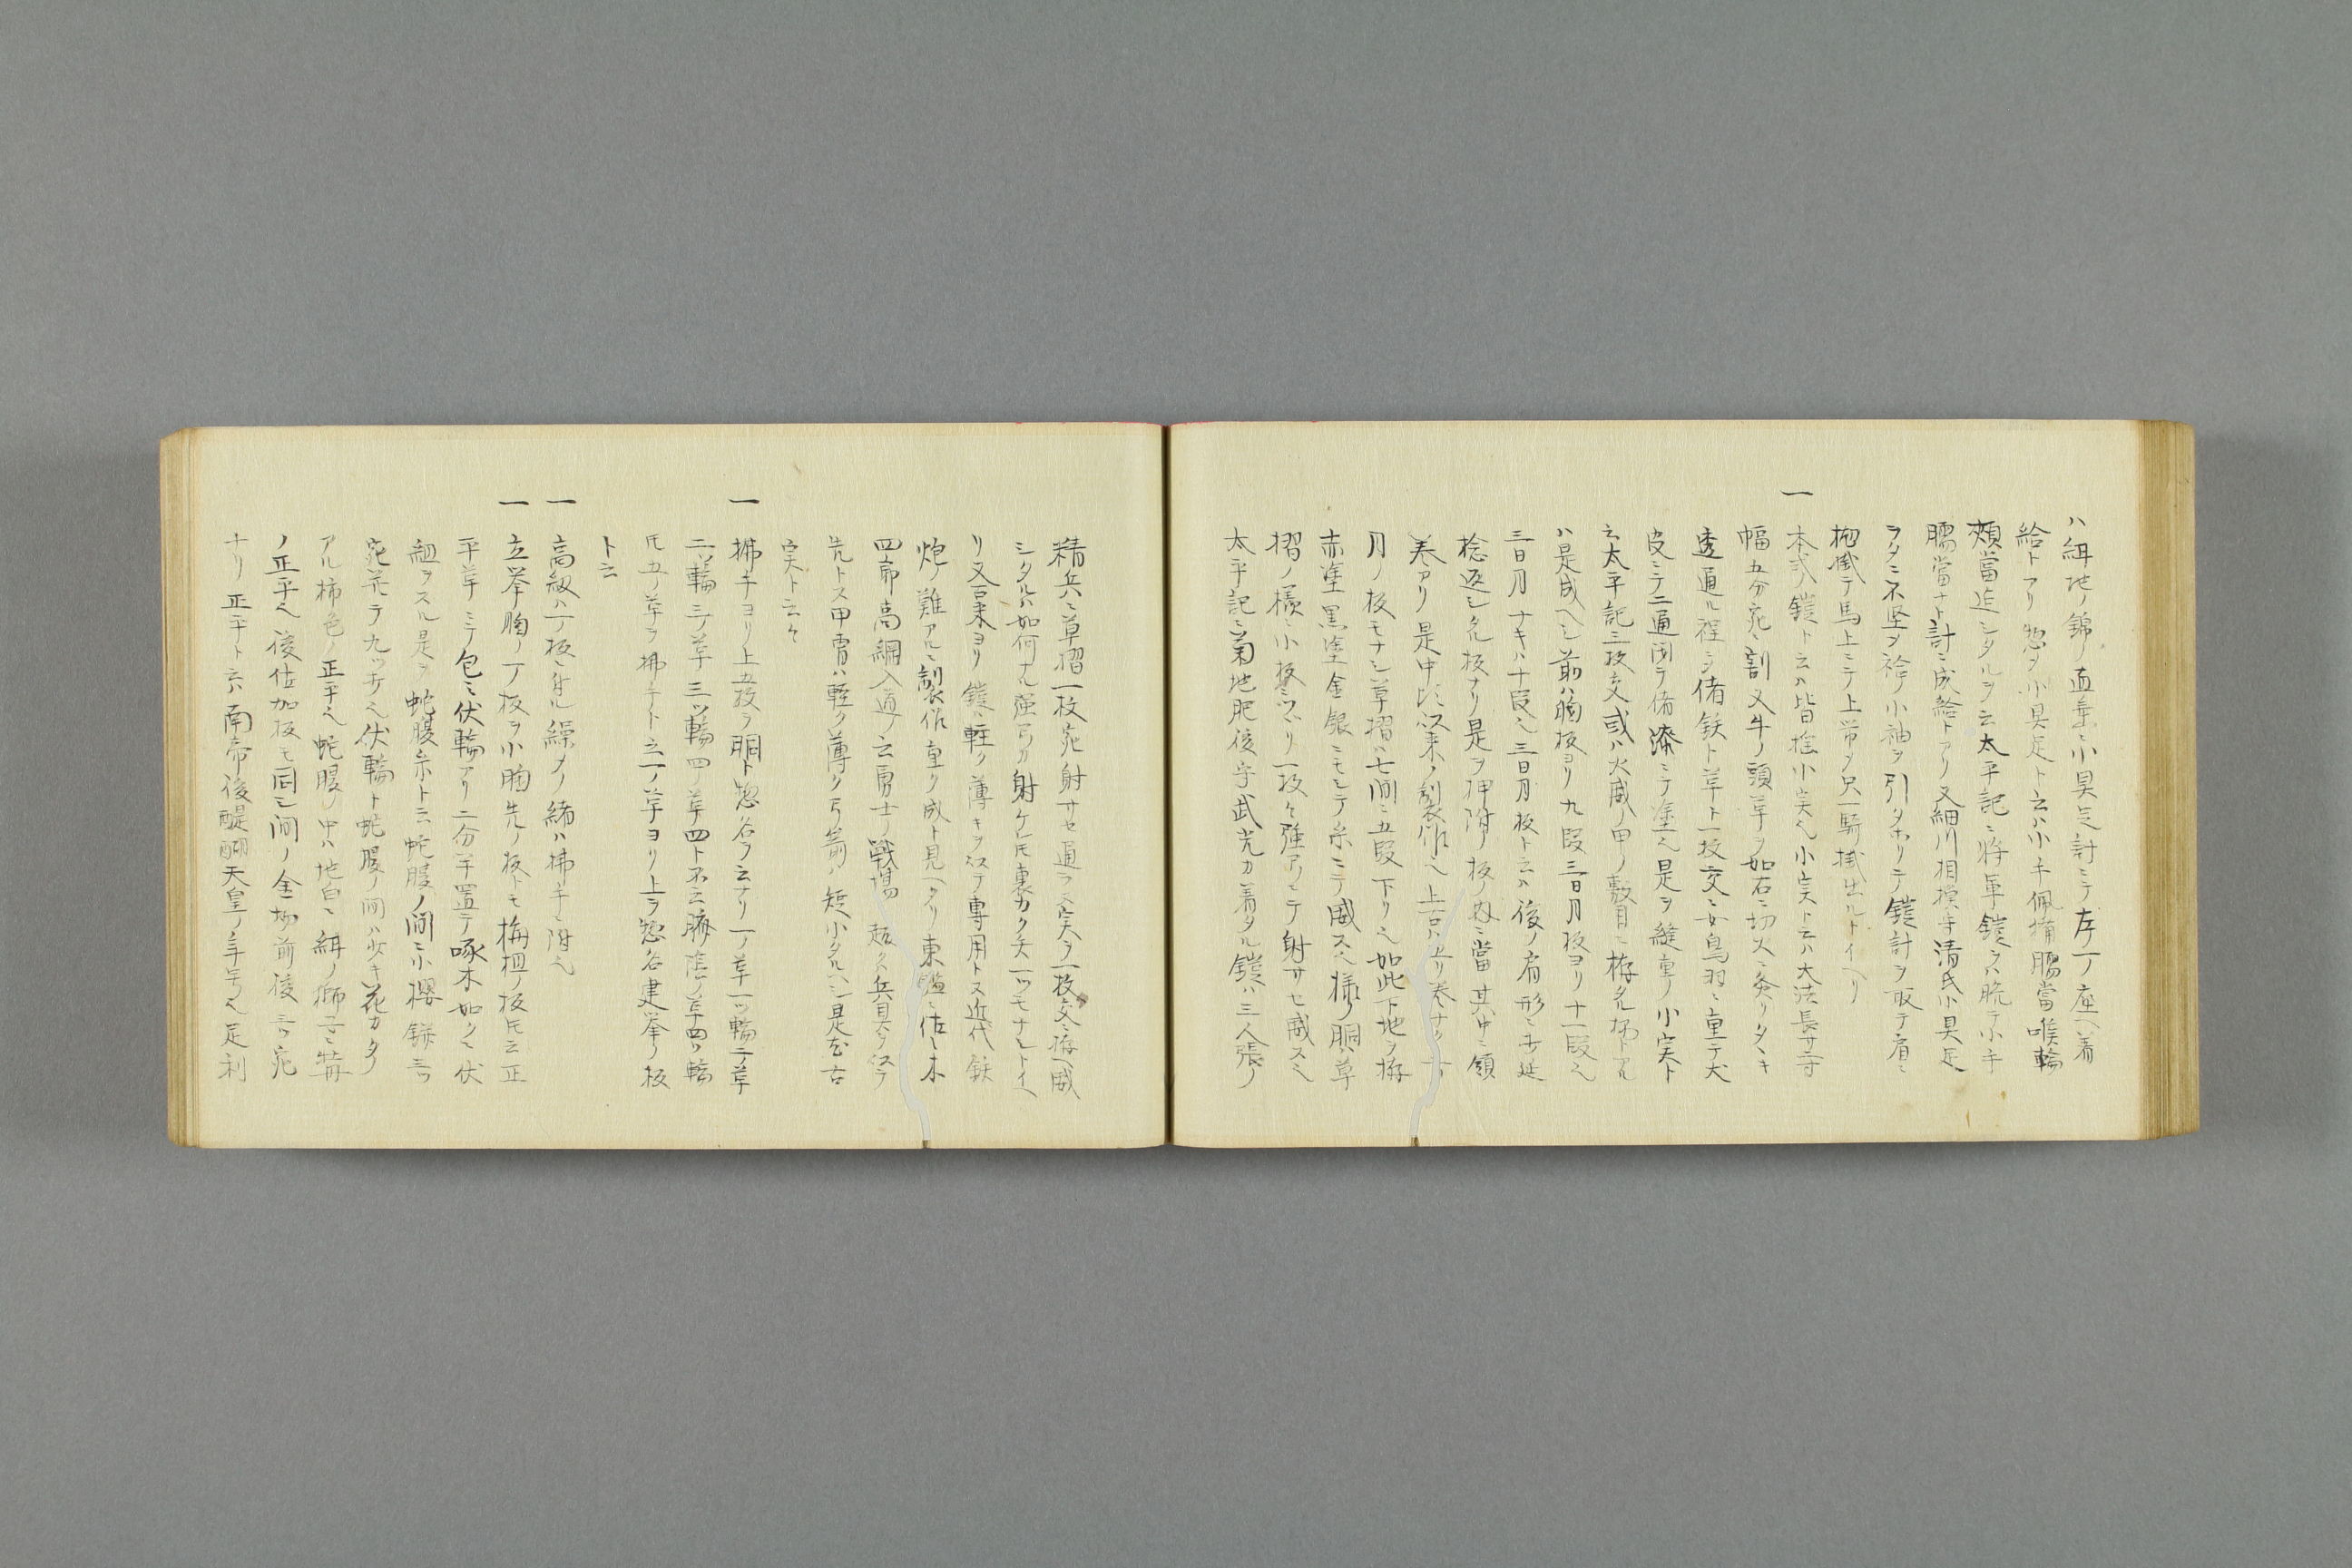 ハ絹地ノ錦ノ直垂ニ小具足計ニテ左ノ座ヘ着
給トアリ惣テ小具足ト云ハ小手佩楯臑當喉輪
頬當迄シタルヲ云太平記ニ将軍鎧ヲハ脱テ小手
臑當ナト計ニ成給トアリ又細川相模守清氏小具足
ヲタニ不堅ヲ袷ノ小袖ヲ引タホリテ鎧計ヲ取テ肩ニ
抛掛テ馬上ニテ上帯ヲ只一騎掛出ルトイヘリ
一 本式ノ鎧ト云ハ皆捻小実ヘ小実ト云ハ大法長サ二寸
幅五分宛ニ割又牛ノ頭革ヲ如右ニ切火ニ炙リタヽキ
透通ル程ニシ偖鉄ト革ト一枚交ニ如鳥羽ニ重テ犬
皮ニテ二通閉テ偖漆ニテ塗ヘ是ヲ縫重ノ小実ト
云太平記三枚交或ハ火威ノ甲ノ敷目ニ拵タルトアル
ハ是成ヘシ前ハ胸板ヨリ九段三日月板ヨリ十一段ヘ
三日月ナキハ十段ヘ三日月板ト云ハ後ノ肩形ニサ延
捻返シタル板ナリ是ヲ押附ノ板ノ内ニ當其中ニ領
巻アリ是中比以来ノ製作ヘ上古ハヱリ巻ナク
月ノ板モナシ草摺ハ七間ニ五段下リヘ如此下地ヲ拵
赤塗黒塗金銀ニモシテ糸ニテ威スヘ様ノ胴草
摺ノ横ニ小板ミツヽリ一枚々強アシテ射サセ威スヘ
太平記ニ菊地肥後守武光カ着タル鎧ハ三人張ノ
精兵ニ草摺一枚宛射サセ通ラヌ実ヲ一枚交ニ拵ヘ威
シタルハ如何ナル強弓カ射ケレ氏裏カク矢一ツモナシトイヘ
リ又吾来ヨリ鎧ニ軽ク薄キヲ以テ専用トス近代鉄
炮ノ難アルニ製作重ク成ト見ヘタリ東鑑ニ佐々木
四郎高綱入道ノ云勇士ノ戦場ニ趣ク兵具ヲ以テ
先トス甲冑ハ軽ク薄ク弓箭ハ短小タルヘシ是古
実ト云々
一 挷手ヨリ上五段ヲ胴ト惣名ヲ云ナリ一ノ草一ツ輪二ノ草
二ツ輪三ノ草三ツ輪四ノ草四ト不云腋陰ノ草四ツ輪
氏五ノ草ヲ挷手ト云一ノ草ヨリ上ヲ惣名建挙ノ板
ト云
一 高紐ハ一ノ板ニ付ル繰〆ノ緒ハ挷手ニ附ヘ
一 立挙胸ノ一ノ板ヲ小胸先ノ板トモ栴檀ノ板氏云正
平革ミテ包ミ伏輪アリ二分半置テ啄木如クミ伏
組ヲスル是ヲ蛇腹糸ト云蛇腹ノ間ニ小櫻鋲三ツ
宛并テ九ツ打ヘ伏輪ト蛇腹ノ間ハ少キ花カタ
アル柿色ノ正平ヘ蛇腹ノ中ハ地白ニ絹ノ獅子ニ牡丹
ノ正平ヘ後仕加板モ同シ間ノ金物前後三ツ宛
ナリ正平ト云ハ南帝後醍醐天皇ノ年号ヘ足利